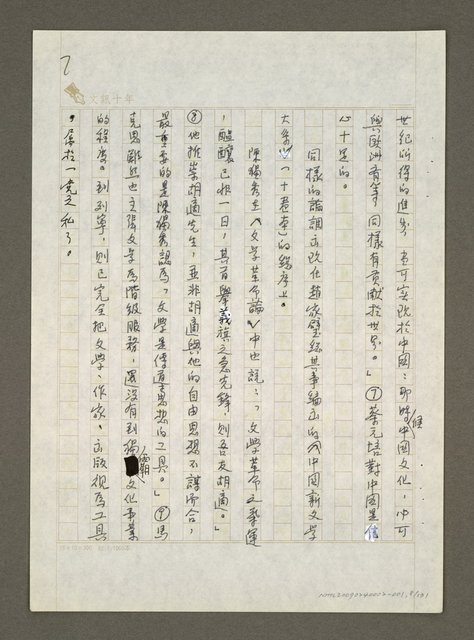 7
文訊十年
世紀所得的進步,亦可實現於中國。那時候中國文化,必可
與歐洲有等,同樣有貢獻於世界。」⑦蔡元培對中國是信
心十足的。
同樣的論調亦放在趙家璧總其事編出的《中國新文學
大系》(十卷本)的總序上。
陳獨秀在《文學革命論》中也說:「文學革命之氣運
,醞釀已非一日,其首舉義旗之急先鋒,則吾友胡適。」
⑧他推崇胡適先生,並非胡適與他的自由思想不謀而合,
最重要的是陳獨秀認為,文學是傳達思想的工具。」⑨馬
克思雖然也主張文學為階級服務,還沒有到獨霸文化事業
的程度。到列寧,則已完全把文學、作家、出版視為工具
,屬於一黨之私了。
NMTL20090240002-001,8/131